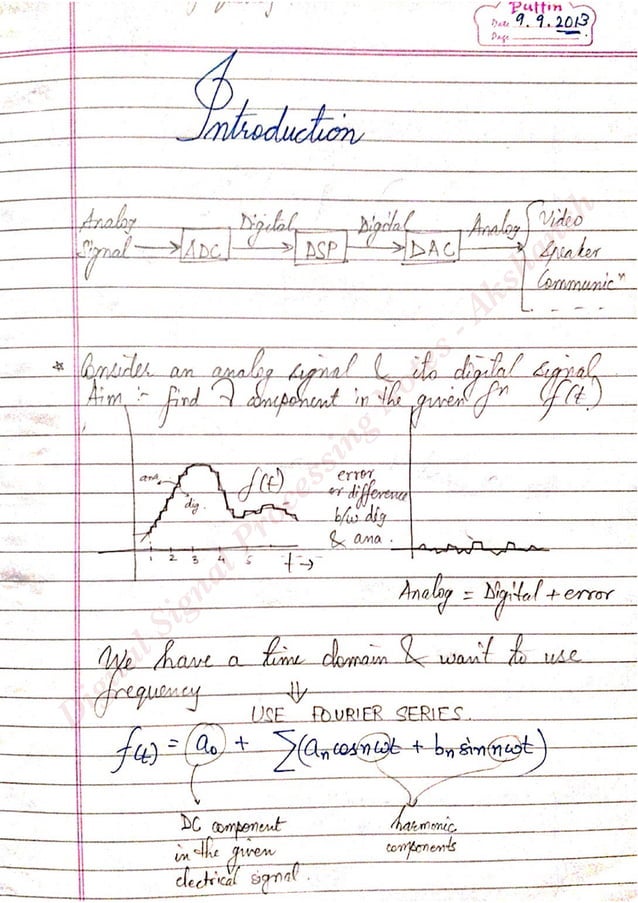 Puffin
Date 9.9.2013
Page
Introduction
Analog Signal → ADC Digital → DSP Digital → DAC Analog → Video
Speaker
Communicⁿ
- - - -
* Consider an analog signal & its digital signal
Aim :- find component in the given fⁿ f(t)
ana
dig.
f(t)
1 2 3 4 5 t →
error
or difference
b/w dig
& ana.
Analog = Digital + error
We have a time domain & want to use
frequency
⇓
USE FOURIER SERIES.
f(t) = a₀ + Σ(aₙcosnωt + bₙsin(nωt)
DC component
in the given
electrical signal.
harmonic
components
Digital Signal Processing Notes - Akshansh